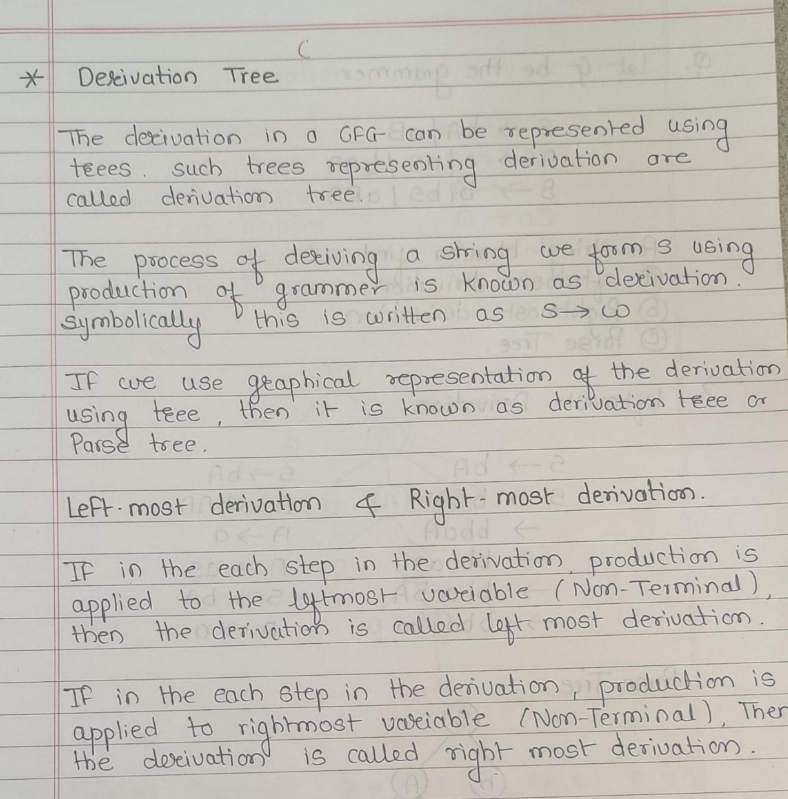 * Derivation Tree
The derivation in a CFG can be represented using
trees. such trees representing derivation are
called derivation tree.
The process of deriving a string we form S using
production of grammer is known as derivation.
Symbolically this is written as S → ω
If we use graphical representation of the derivation
using tree, then it is known as derivation tree or
Parse tree.
Left-most derivation & Right-most derivation.
If in the each step in the derivation, production is
applied to the leftmost variable (Non-Terminal),
then the derivation is called left most derivation.
If in the each step in the derivation, production is
applied to rightmost variable (Non-Terminal), Then
the derivation is called right most derivation.